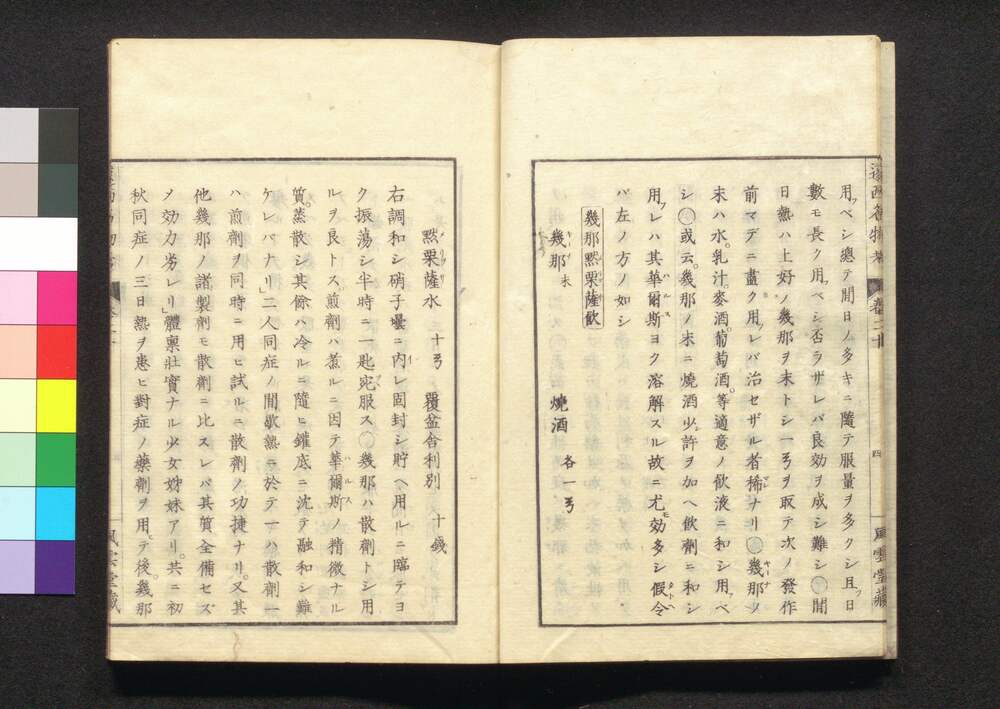 用フベシ總テ間日ノ多キニ隨テ服量ヲ多クシ且ツ日
數モ長ク用フベシ否ラザレバ良効ヲ成シ難シ〇間
日熱ハ上好ノ幾那ヲ末トシ一弓ヲ取テ次ノ發作
前マデニ盡ク用フレバ治セザル者稀ナリ〇幾那キーナノ
末ハ水。乳汁。麥酒。葡萄酒。等適意ノ飲液ニ和シ用フベ
シ〇或云。幾那ノ末ニ燒酒少許ヲ加ヘ飲劑ニ和シ
用フレハ其華爾斯ハルスヨク溶解スル故ニ尤モ効多シ假令タトヘ
バ左ノ方ノ如シ
幾那默栗薩飲
幾那キーナ末 燒酒 各一弓
默栗薩メリッサ水 十弓 覆盆舎利別 十錢
右調和シ硝子壜ニ内レ固封シ貯ヘ用ルニ臨テヨ
ク振蕩シ半時ニ一匙宛服ス〇幾那ハ散劑トシ用
ルヲ良トス。煎劑ハ煮ルニ因テ華爾斯ハルスノ精微ナル
質。蒸散シ其餘ハ冷ルニ隨ヒ鑵底ニ沈テ融和シ難
ケレバナリ」二人同症ノ間歇熱ニ於テ一ハ散劑一
ハ煎劑ヲ同時ニ用ヒ試ルニ散劑ノ功捷ナリ。又其
他幾那ノ諸製劑モ散劑ニ比スレバ其質全備セズ
〆効力劣レリ」體稟壯實ナル少女姉妹アリ。共ニ初
秋同症ノ三日熱ヲ患ヒ對症ノ藥劑ヲ用テ後。幾那
四
風雲堂藏